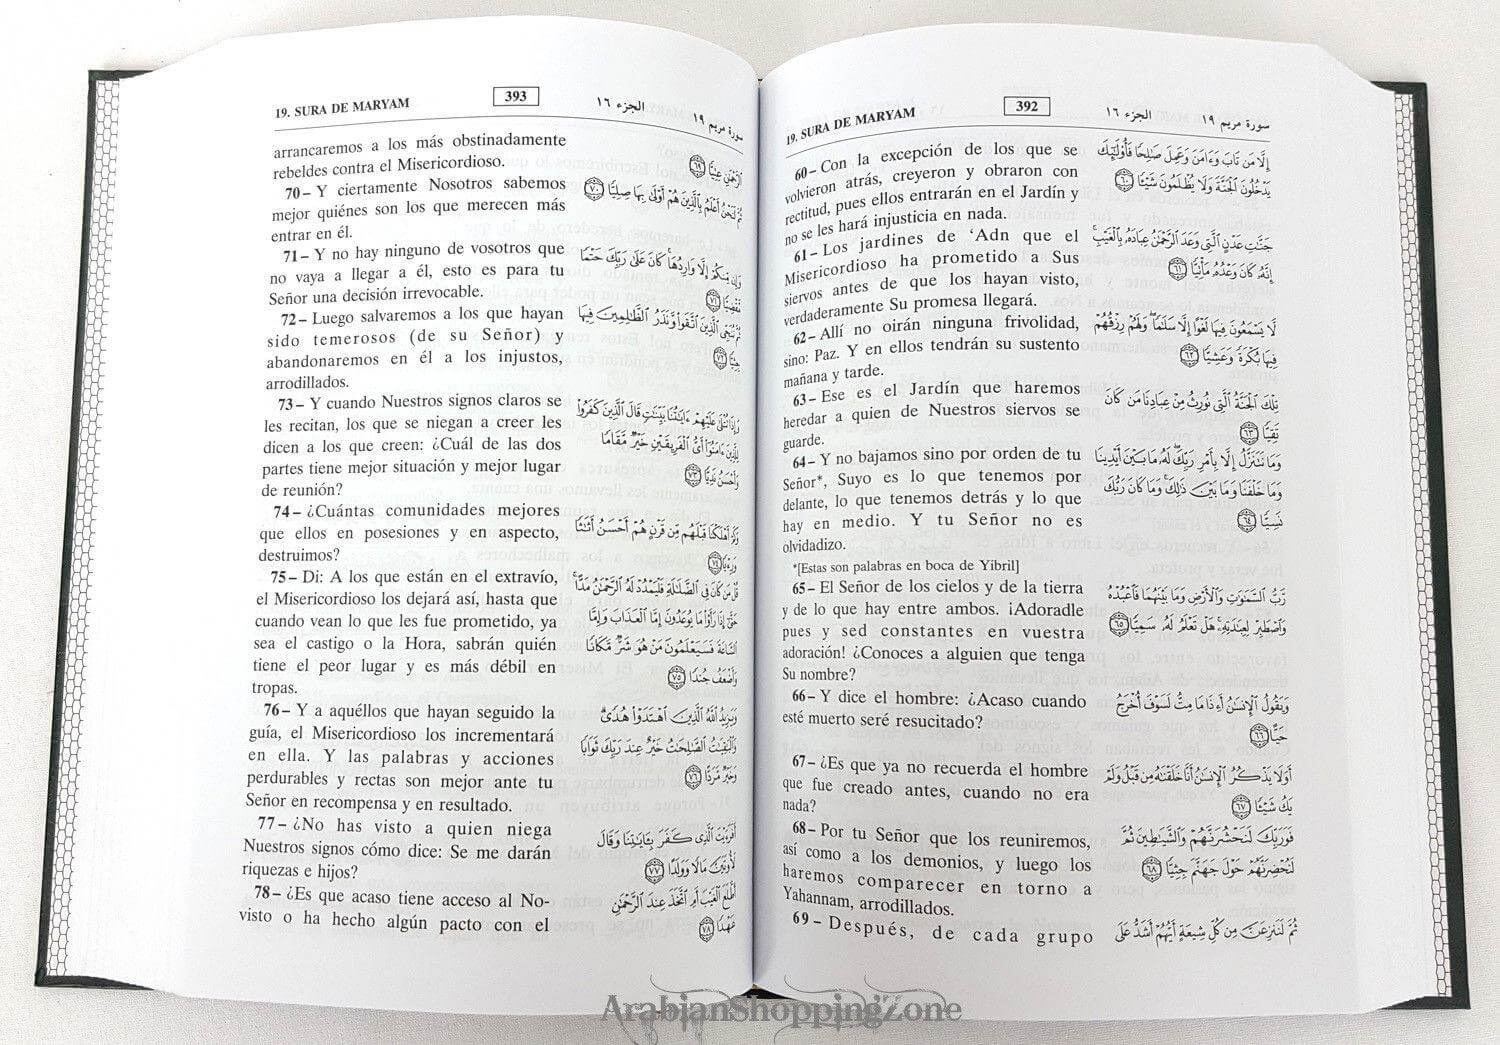 19. SURA DE MARYAM
392
الجزء ١٦
سورة مريم ١٩
60 – Con la excepción de los que se
volvieron atrás, creyeron y obraron con
rectitud, pues ellos entrarán en el Jardín y
no se les hará injusticia en nada.
61 – Los jardines de ‘Adn que el
Misericordioso ha prometido a Sus
siervos antes de que los hayan visto,
verdaderamente Su promesa llegará.
62 – Allí no oirán ninguna frivolidad,
sino: Paz. Y en ellos tendrán su sustento
mañana y tarde.
63 – Ese es el Jardín que haremos
heredar a quien de Nuestros siervos se
guarde.
64 – Y no bajamos sino por orden de tu
Señor*, Suyo es lo que tenemos por
delante, lo que tenemos detrás y lo que
hay en medio. Y tu Señor no es
olvidadizo.
*[Estas son palabras en boca de Yibril]
65 – El Señor de los cielos y de la tierra
y de lo que hay entre ambos. ¡Adoradle
pues y sed constantes en vuestra
adoración! ¿Conoces a alguien que tenga
Su nombre?
66 – Y dice el hombre: ¿Acaso cuando
esté muerto seré resucitado?
67 – ¿Es que ya no recuerda el hombre
que fue creado antes, cuando no era
nada?
68 – Por tu Señor que los reuniremos,
así como a los demonios, y luego los
haremos comparecer en torno a
Yahannam, arrodillados.
69 – Después, de cada grupo
إِلَّا مَن تَابَ وَءَامَنَ وَعَمِلَ صَٰلِحًا فَأُو۟لَٰٓئِكَ
يَدْخُلُونَ ٱلْجَنَّةَ وَلَا يُظْلَمُونَ شَيْـًٔا ٦٠
جَنَّٰتِ عَدْنٍ ٱلَّتِى وَعَدَ ٱلرَّحْمَٰنُ عِبَادَهُۥ بِٱلْغَيْبِ ۚ
إِنَّهُۥ كَانَ وَعْدُهُۥ مَأْتِيًّا ٦١
لَّا يَسْمَعُونَ فِيهَا لَغْوًا إِلَّا سَلَٰمًا ۖ وَلَهُمْ رِزْقُهُمْ
فِيهَا بُكْرَةً وَعَشِيًّا ٦٢
تِلْكَ ٱلْجَنَّةُ ٱلَّتِى نُورِثُ مِنْ عِبَادِنَا مَن كَانَ
تَقِيًّا ٦٣
وَمَا نَتَنَزَّلُ إِلَّا بِأَمْرِ رَبِّكَ ۖ لَهُۥ مَا بَيْنَ أَيْدِينَا
وَمَا خَلْفَنَا وَمَا بَيْنَ ذَٰلِكَ ۚ وَمَا كَانَ رَبُّكَ
نَسِيًّا ٦٤
رَّبُّ ٱلسَّمَٰوَٰتِ وَٱلْأَرْضِ وَمَا بَيْنَهُمَا فَٱعْبُدْهُ
وَٱصْطَبِرْ لِعِبَٰدَتِهِۦ ۚ هَلْ تَعْلَمُ لَهُۥ سَمِيًّا ٦٥
وَيَقُولُ ٱلْإِنسَٰنُ أَءِذَا مَا مِتُّ لَسَوْفَ أُخْرَجُ
حَيًّا ٦٦
أَوَلَا يَذْكُرُ ٱلْإِنسَٰنُ أَنَّا خَلَقْنَٰهُ مِن قَبْلُ وَلَمْ
يَكُ شَيْـًٔا ٦٧
فَوَرَبِّكَ لَنَحْشُرَنَّهُمْ وَٱلشَّيَٰطِينَ ثُمَّ
لَنُحْضِرَنَّهُمْ حَوْلَ جَهَنَّمَ جِثِيًّا ٦٨
ثُمَّ لَنَنزِعَنَّ مِن كُلِّ شِيعَةٍ أَيُّهُمْ أَشَدُّ عَلَى
19. SURA DE MARYAM
393
الجزء ١٦
سورة مريم ١٩
arrancaremos a los más obstinadamente
rebeldes contra el Misericordioso.
70 – Y ciertamente Nosotros sabemos
mejor quiénes son los que merecen más
entrar en él.
71 – Y no hay ninguno de vosotros que
no vaya a llegar a él, esto es para tu
Señor una decisión irrevocable.
72 – Luego salvaremos a los que hayan
sido temerosos (de su Señor) y
abandonaremos en él a los injustos,
arrodillados.
73 – Y cuando Nuestros signos claros se
les recitan, los que se niegan a creer les
dicen a los que creen: ¿Cuál de las dos
partes tiene mejor situación y mejor lugar
de reunión?
74 – ¿Cuántas comunidades mejores
que ellos en posesiones y en aspecto,
destruimos?
75 – Di: A los que están en el extravío,
el Misericordioso los dejará así, hasta que
cuando vean lo que les fue prometido, ya
sea el castigo o la Hora, sabrán quién
tiene el peor lugar y es más débil en
tropas.
76 – Y a aquéllos que hayan seguido la
guía, el Misericordioso los incrementará
en ella. Y las palabras y acciones
perdurables y rectas son mejor ante tu
Señor en recompensa y en resultado.
77 – ¿No has visto a quien niega
Nuestros signos cómo dice: Se me darán
riquezas e hijos?
78 – ¿Es que acaso tiene acceso al No-
visto o ha hecho algún pacto con el
ٱلرَّحْمَٰنِ عِتِيًّا ٦٩
ثُمَّ لَنَحْنُ أَعْلَمُ بِٱلَّذِينَ هُمْ أَوْلَىٰ بِهَا صِلِيًّا ٧٠
وَإِن مِّنكُمْ إِلَّا وَارِدُهَا ۚ كَانَ عَلَىٰ رَبِّكَ حَتْمًا
مَّقْضِيًّا ٧١
ثُمَّ نُنَجِّى ٱلَّذِينَ ٱتَّقَوا۟ وَّنَذَرُ ٱلظَّٰلِمِينَ فِيهَا
جِثِيًّا ٧٢
وَإِذَا تُتْلَىٰ عَلَيْهِمْ ءَايَٰتُنَا بَيِّنَٰتٍ قَالَ ٱلَّذِينَ كَفَرُوا۟
لِلَّذِينَ ءَامَنُوٓا۟ أَىُّ ٱلْفَرِيقَيْنِ خَيْرٌ مَّقَامًا
وَأَحْسَنُ نَدِيًّا ٧٣
وَكَمْ أَهْلَكْنَا قَبْلَهُم مِّن قَرْنٍ هُمْ أَحْسَنُ أَثَٰثًا
وَرِءْيًا ٧٤
قُلْ مَن كَانَ فِى ٱلضَّلَٰلَةِ فَلْيَمْدُدْ لَهُ ٱلرَّحْمَٰنُ مَدًّا ۚ
حَتَّىٰٓ إِذَا رَأَوْا۟ مَا يُوعَدُونَ إِمَّا ٱلْعَذَابَ وَإِمَّا
ٱلسَّاعَةَ فَسَيَعْلَمُونَ مَنْ هُوَ شَرٌّ مَّكَانًا
وَأَضْعَفُ جُندًا ٧٥
وَيَزِيدُ ٱللَّهُ ٱلَّذِينَ ٱهْتَدَوْا۟ هُدًى ۗ
وَٱلْبَٰقِيَٰتُ ٱلصَّٰلِحَٰتُ خَيْرٌ عِندَ رَبِّكَ ثَوَابًا
وَخَيْرٌ مَّرَدًّا ٧٦
أَفَرَءَيْتَ ٱلَّذِى كَفَرَ بِـَٔايَٰتِنَا وَقَالَ
لَأُوتَيَنَّ مَالًا وَوَلَدًا ٧٧
أَطَّلَعَ ٱلْغَيْبَ أَمِ ٱتَّخَذَ عِندَ ٱلرَّحْمَٰنِ
عَهْدًا ٧٨
ArabianShoppingZone